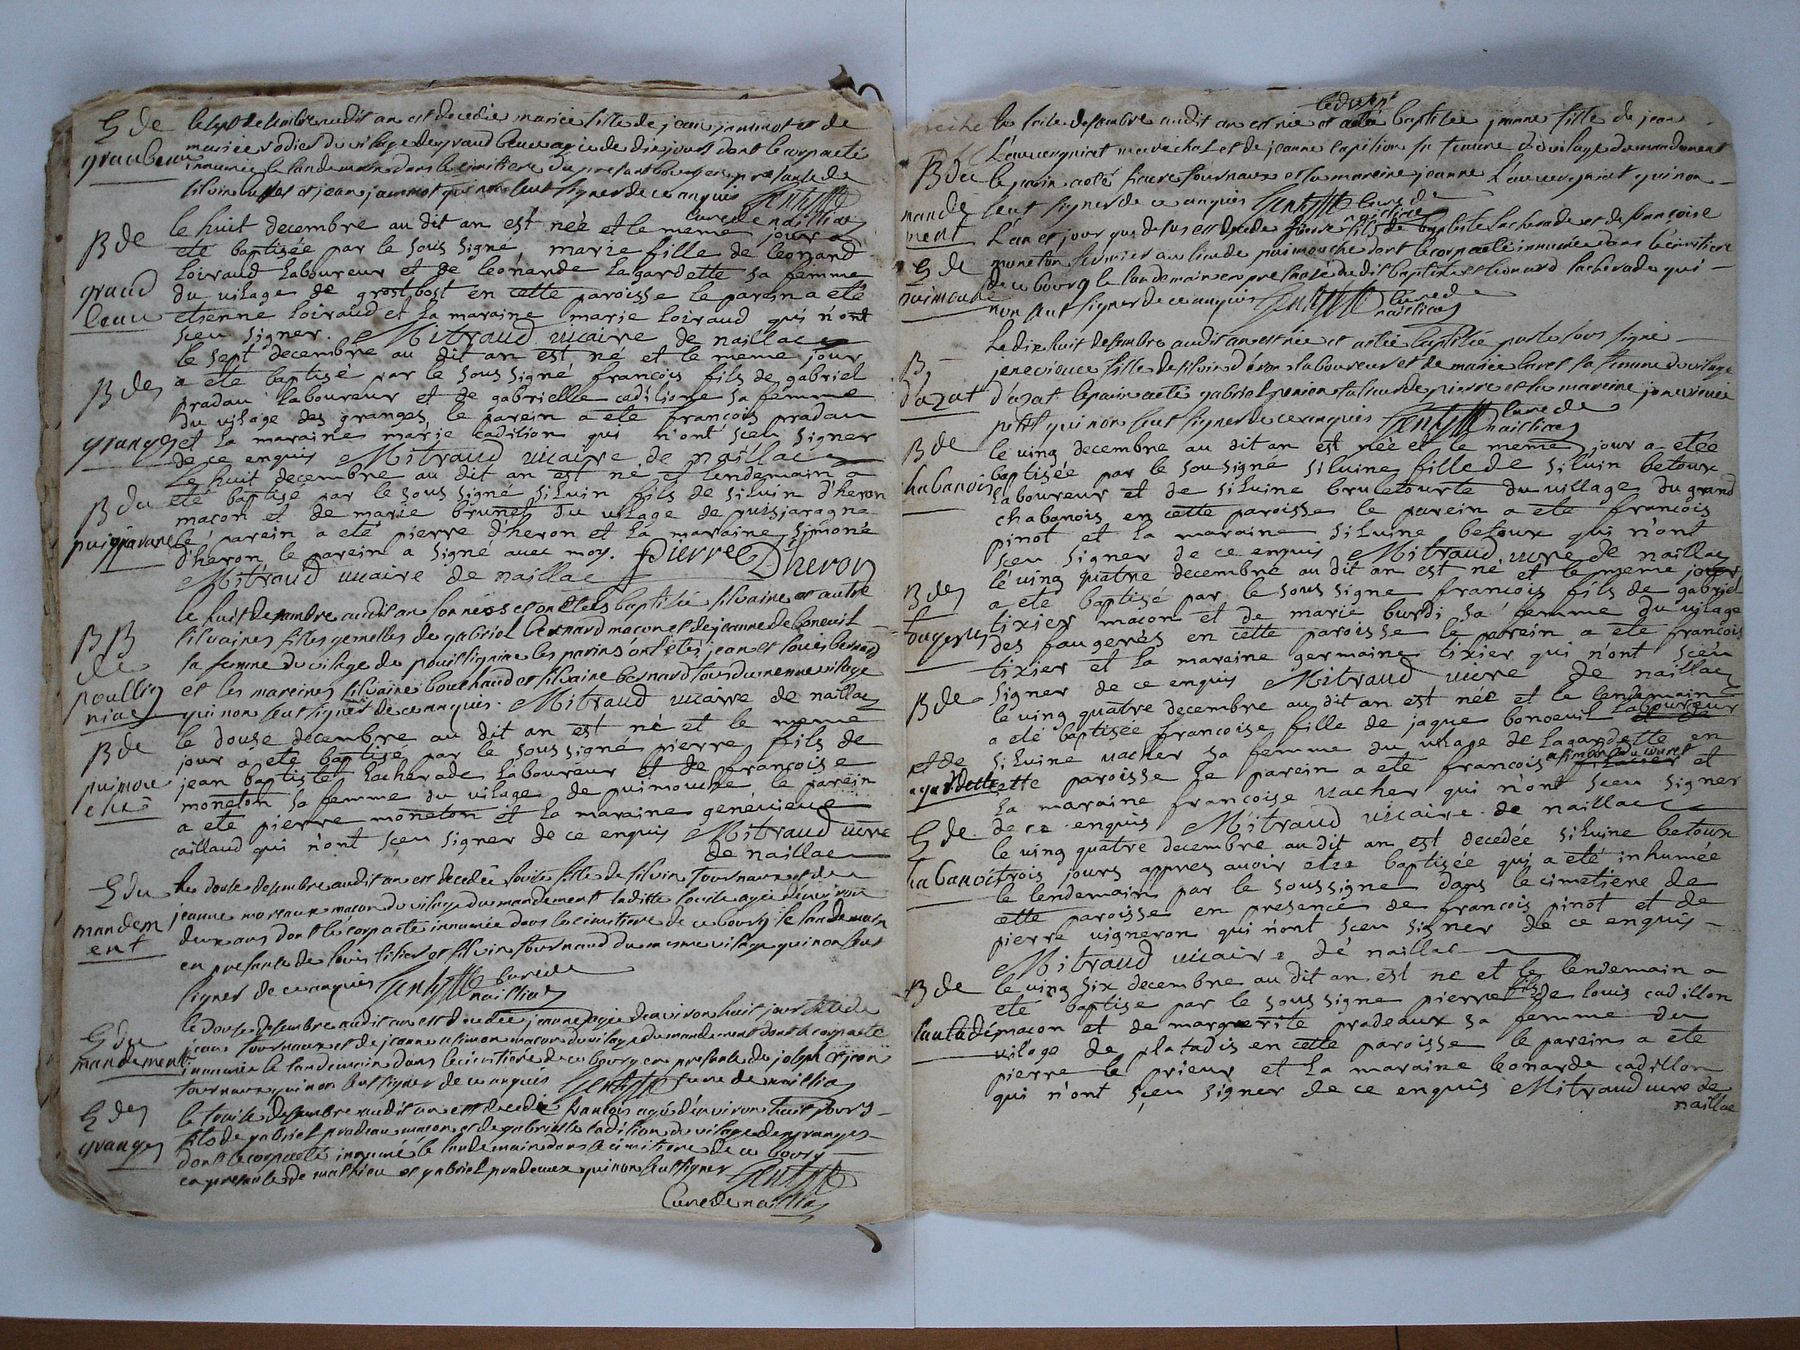 E de
graubeau
le sept desembre audit an est decedée marie fille de jean jammot et de
marie rodier du vilage de graud beau agée de dix jours dont le corp a eté
innumée le landemain dans le cimitiere du presant bourg en presance de
silvin et jean jammot qui non seut signer de ce anquis
curé de naillac
B de
graud
beau
le huit decembre au dit an est neé et le meme jour a
eté baptisée par le sous signé marie fille de leonard
Loiraud Laboureur et de leonarde Lagardette sa femme
du vilage de grostbost en cette paroisse le parein a eté
etienne Loiraud et la maraine marie Loiraud qui n'ont
sceu signer. Mitraud vicaire de naillac
B des
granges
le sept decembre au dit an est né et le meme jour
a eté baptisé par le sous signé françois fils de gabriel
pradau laboureur et de gabrielle cadilione sa femme
du vilage des granges, le parein a eté françois pradau
et la maraine marie cadilion qui n'ont sceu signer
de ce enquis Mitraud vicaire de naillac
B du
puigjarane
Le huit decembre au dit an est né et lendemain a
eté baptisé par le sous signé silvin fils de silvin d'heron
macon et de marie brunet du vilage de puisjaragna
le parein a eté pierre d'heron et la maraine simone
d'heron le parein a signé avec moy. Pierre Dheron
Mitraud vicaire de naillac
BB
de
poullig
niac
le huit desambre audit an sonnées et ont etes baptisée silvaine et autre
silvaines filles gemelles de gabriel bernard macon et de jeanne de boneuil
sa femme du vilage de pouillignac les parins ont étés jean et louis bernard
et les mareines silvaine bouchaud et silvaine bernard tous du meme vilage
qui non seut signer de ce anquis. Mitraud vicaire de naillac
B de
puimou
che
le douse decembre au dit an est né et le meme
jour a eté baptisé par le sous signé pierre fils de
jean baptiste Lacherade Laboureur et de françoise
moneton sa femme du vilage de puimouche, le parein
a eté pierre moneton et la maraine genevieve
caillaud qui n'ont sçeu signer de ce enquis Mitraud vicre
de naillac
E du
mandem
ent
Le douse desembre audit an est decedée louise fille de silvin tournaux et de
jeanne moreaux macon du vilage du mandement laditte louise agée d'environ
deux ans dont le corp a eté innumée dans le cimitiere de ce bourg le landemain
en presance de louis tixier et silvin tournaud du meme vilage qui non seut
signer de ce anquis curé de
naillac
E du
mandement
le douse desembre audit an est decedée jeanne agée d'environ huit jour fille de
jean tournaux et de jeanne simon macon du vilage du mandement dont le corp a eté
innumée le landemain dans le cimitiere de ce bourg en presance de joseph et jean
tournaux qui non seut signer de ce anquis curé de naillac
E des
granges
le trise desembre audit an est decedé françois agé d'environ huit jours
fils de gabriel pradeau macon et de gabrielle cadilion du vilage des granges
dont le corp a eté innumé le landemain dans le cimitiere de ce bourg
en presance de mathieu et gabriel pradeaux qui non seut signer
Curé de naillac
B du
mande
ment
le saise desembre audit an est née et a eté baptisée jeanne fille de jean
Lauvergniat marechal et de jeanne sa femme du vilage du mandement
le parin a eté tournaux et la mareine jeanne Lauvergniat qui non
seut signer de ce anquis curé de
naillac
E de
puimouche
L'an et jour que desus est decedé pierre fils de baptiste lacherade et de françoise
moneton au lieu de puimouche dont le corp a eté innumée dans le cimitiere
de ce bourg le landemain en presance du dit baptiste et lionard lacherade qui
non seut signer de ce anquis curé de
naillac
B
d'azat
Le dix huit desembre audit an est née et a eté baptisée par le sous signé
jenevieve fille de silvin d'éron laboureur et de marie laret sa femme du vilage
d'azat le parin a eté gabriel et la mareine jenevieve
petit qui non seut signer de ce anquis curé de
naillac
B de
chabanois
le ving decembre au dit an est née et le meme jour a etée
baptisée par le sousigné silvine fille de silvin betoux
laboureur et de silvine bruletourte du village du grand
chabanois en cette paroisse le parein a eté françois
pinot et la maraine silvine betoux qui n'ont
sceu signer de ce enquis Mitraud vicre de naillac
B des
faugeres
le ving quatre decembre au dit an est né et le meme jour
a eté baptisé par le sous signe françois fils de gabriel
tixier macon et de marie burdi sa femme du vilage
des faugeres en cette paroisse le parein a eté françois
tixier et la maraine germaine tixier qui n'ont sceu
signer de ce enquis Mitraud vicre de naillac
B de
lagardette
le ving quatre decembre au dit an est née et le lendemain
a eté baptisée françoise fille de jaque bonoeuil laboureur
et de silvine vacher sa femme du vilage de lagardette en
cette paroisse le parein a eté françois et
la maraine françoise vacher qui n'ont sceu signer
de ce enquis Mitraud vicaire de naillac
E de
chabanois
le ving quatre decembre au dit an est decedée silvine betoux
trois jours appres avoir etée baptisée qui a eté inhumée
le lendemain par le soussigné dans le cimetiere de
cette paroisse en presence de françois pinot et de
pierre vigneron qui n'ont sceu signer de ce enquis
Mitraud vicaire de naillac
B de
plantadis
le ving six decembre au dit an est né et le lendemain a
eté baptise par le sous signe pierre fils de louis cadillon
macon et de marguerite pradeaux sa femme du
vilage de platadis en cette paroisse le parein a eté
pierre le prieur et la maraine leonarde cadillon
qui n'ont sçeu signer de ce enquis Mitraud vicre de
naillac